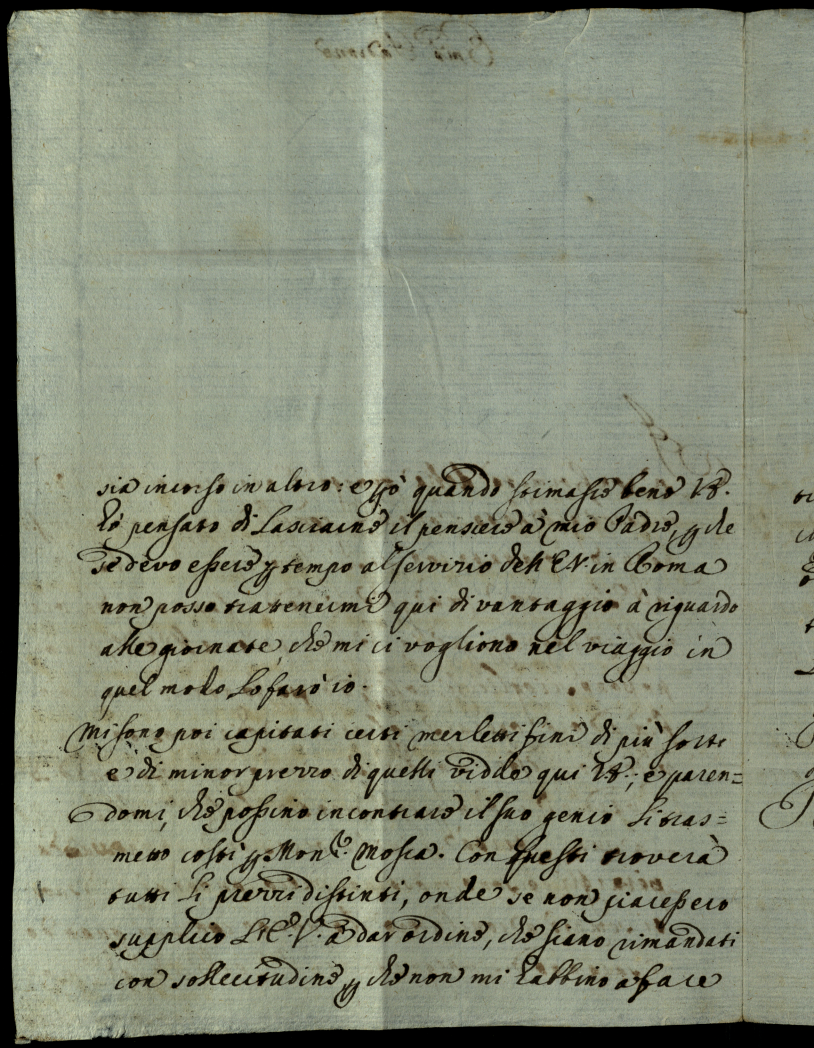 sia incorso in altro: e però quando stimasse bene V.E.
hò pensato di lasciarne il pensiere à mio Padre, che
se devo essere tempo al servizio dell' E.V. in Roma
non posso trattenermi qui di vantaggio à riguardo
alle giornate, che mi ci vogliono nel viaggio in
quel modo lo farò io.
Mi sono poi capitati certi merletti fini di più sorti
e di minor prezzo di quelli vidde qui V.E.; e paren=
domi, che possino incontrare il suo genio li tras=
metto costì Mosca. Con questi troverà
tutti li prezzi distinti, onde se non piacessero
supplico V. à dar ordine, che siano rimandati
con sollecitudine, che non mi habbino a fare